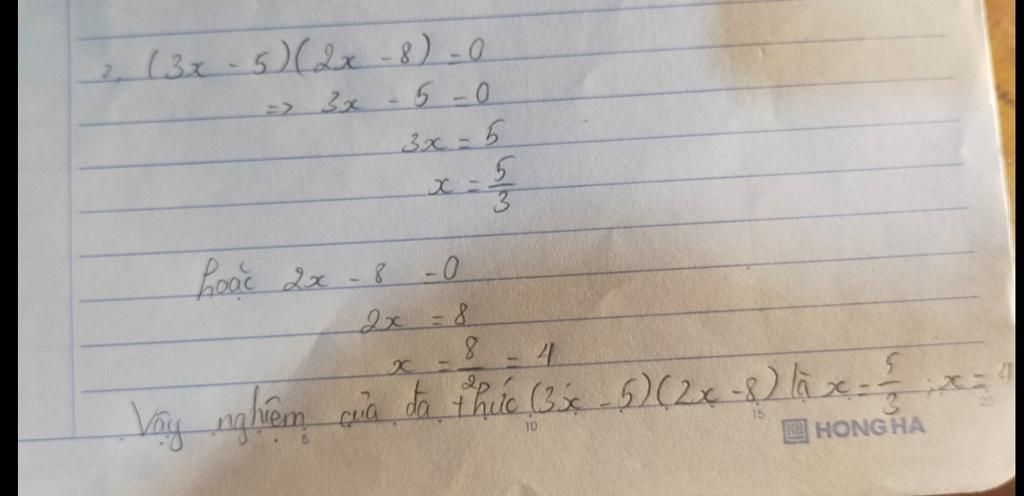 2, (3x - 5)(2x - 8) = 0
=> 3x - 5 = 0
3x = 5
x = 5/3
hoặc 2x - 8 = 0
2x = 8
x = 8/2 = 4
Vậy nghiệm của đa thức (3x - 5)(2x - 8) là x = 5/3 ; x = 4
5 10 15 20
HH HONG HA